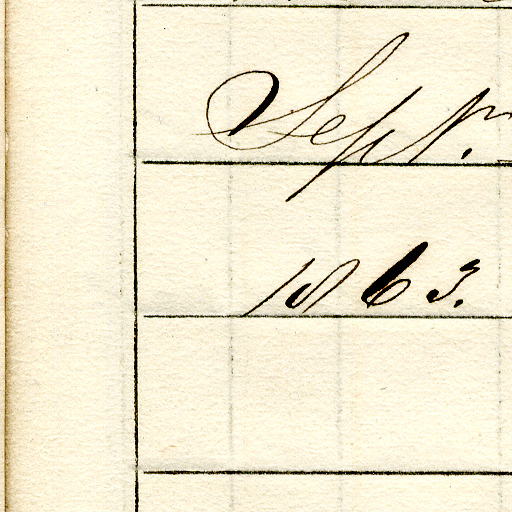 Sept.
1863.